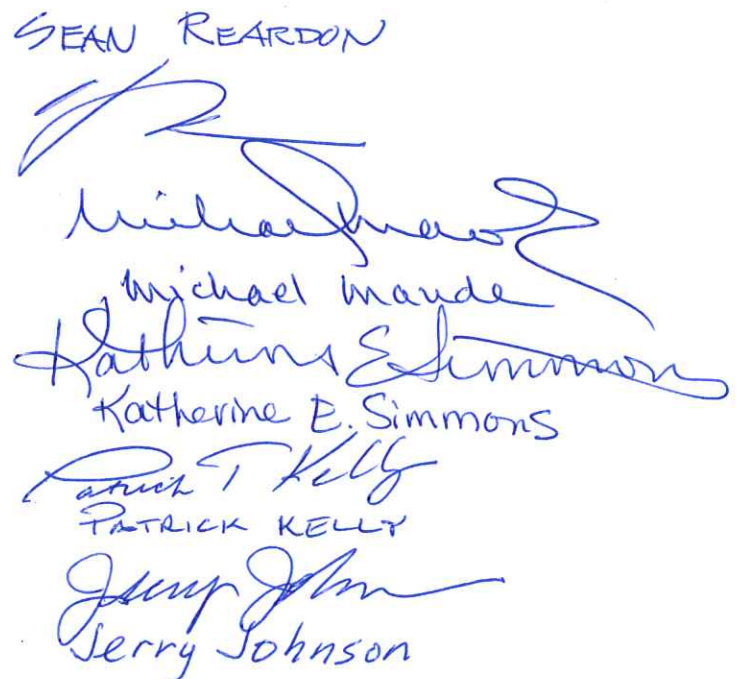 SEAN REARDON
Michael Maude
Michael Maude
Katherine E Simmons
Katherine E. Simmons
Patrick T Kelly
PATRICK KELLY
Jerry Johnson
Jerry Johnson